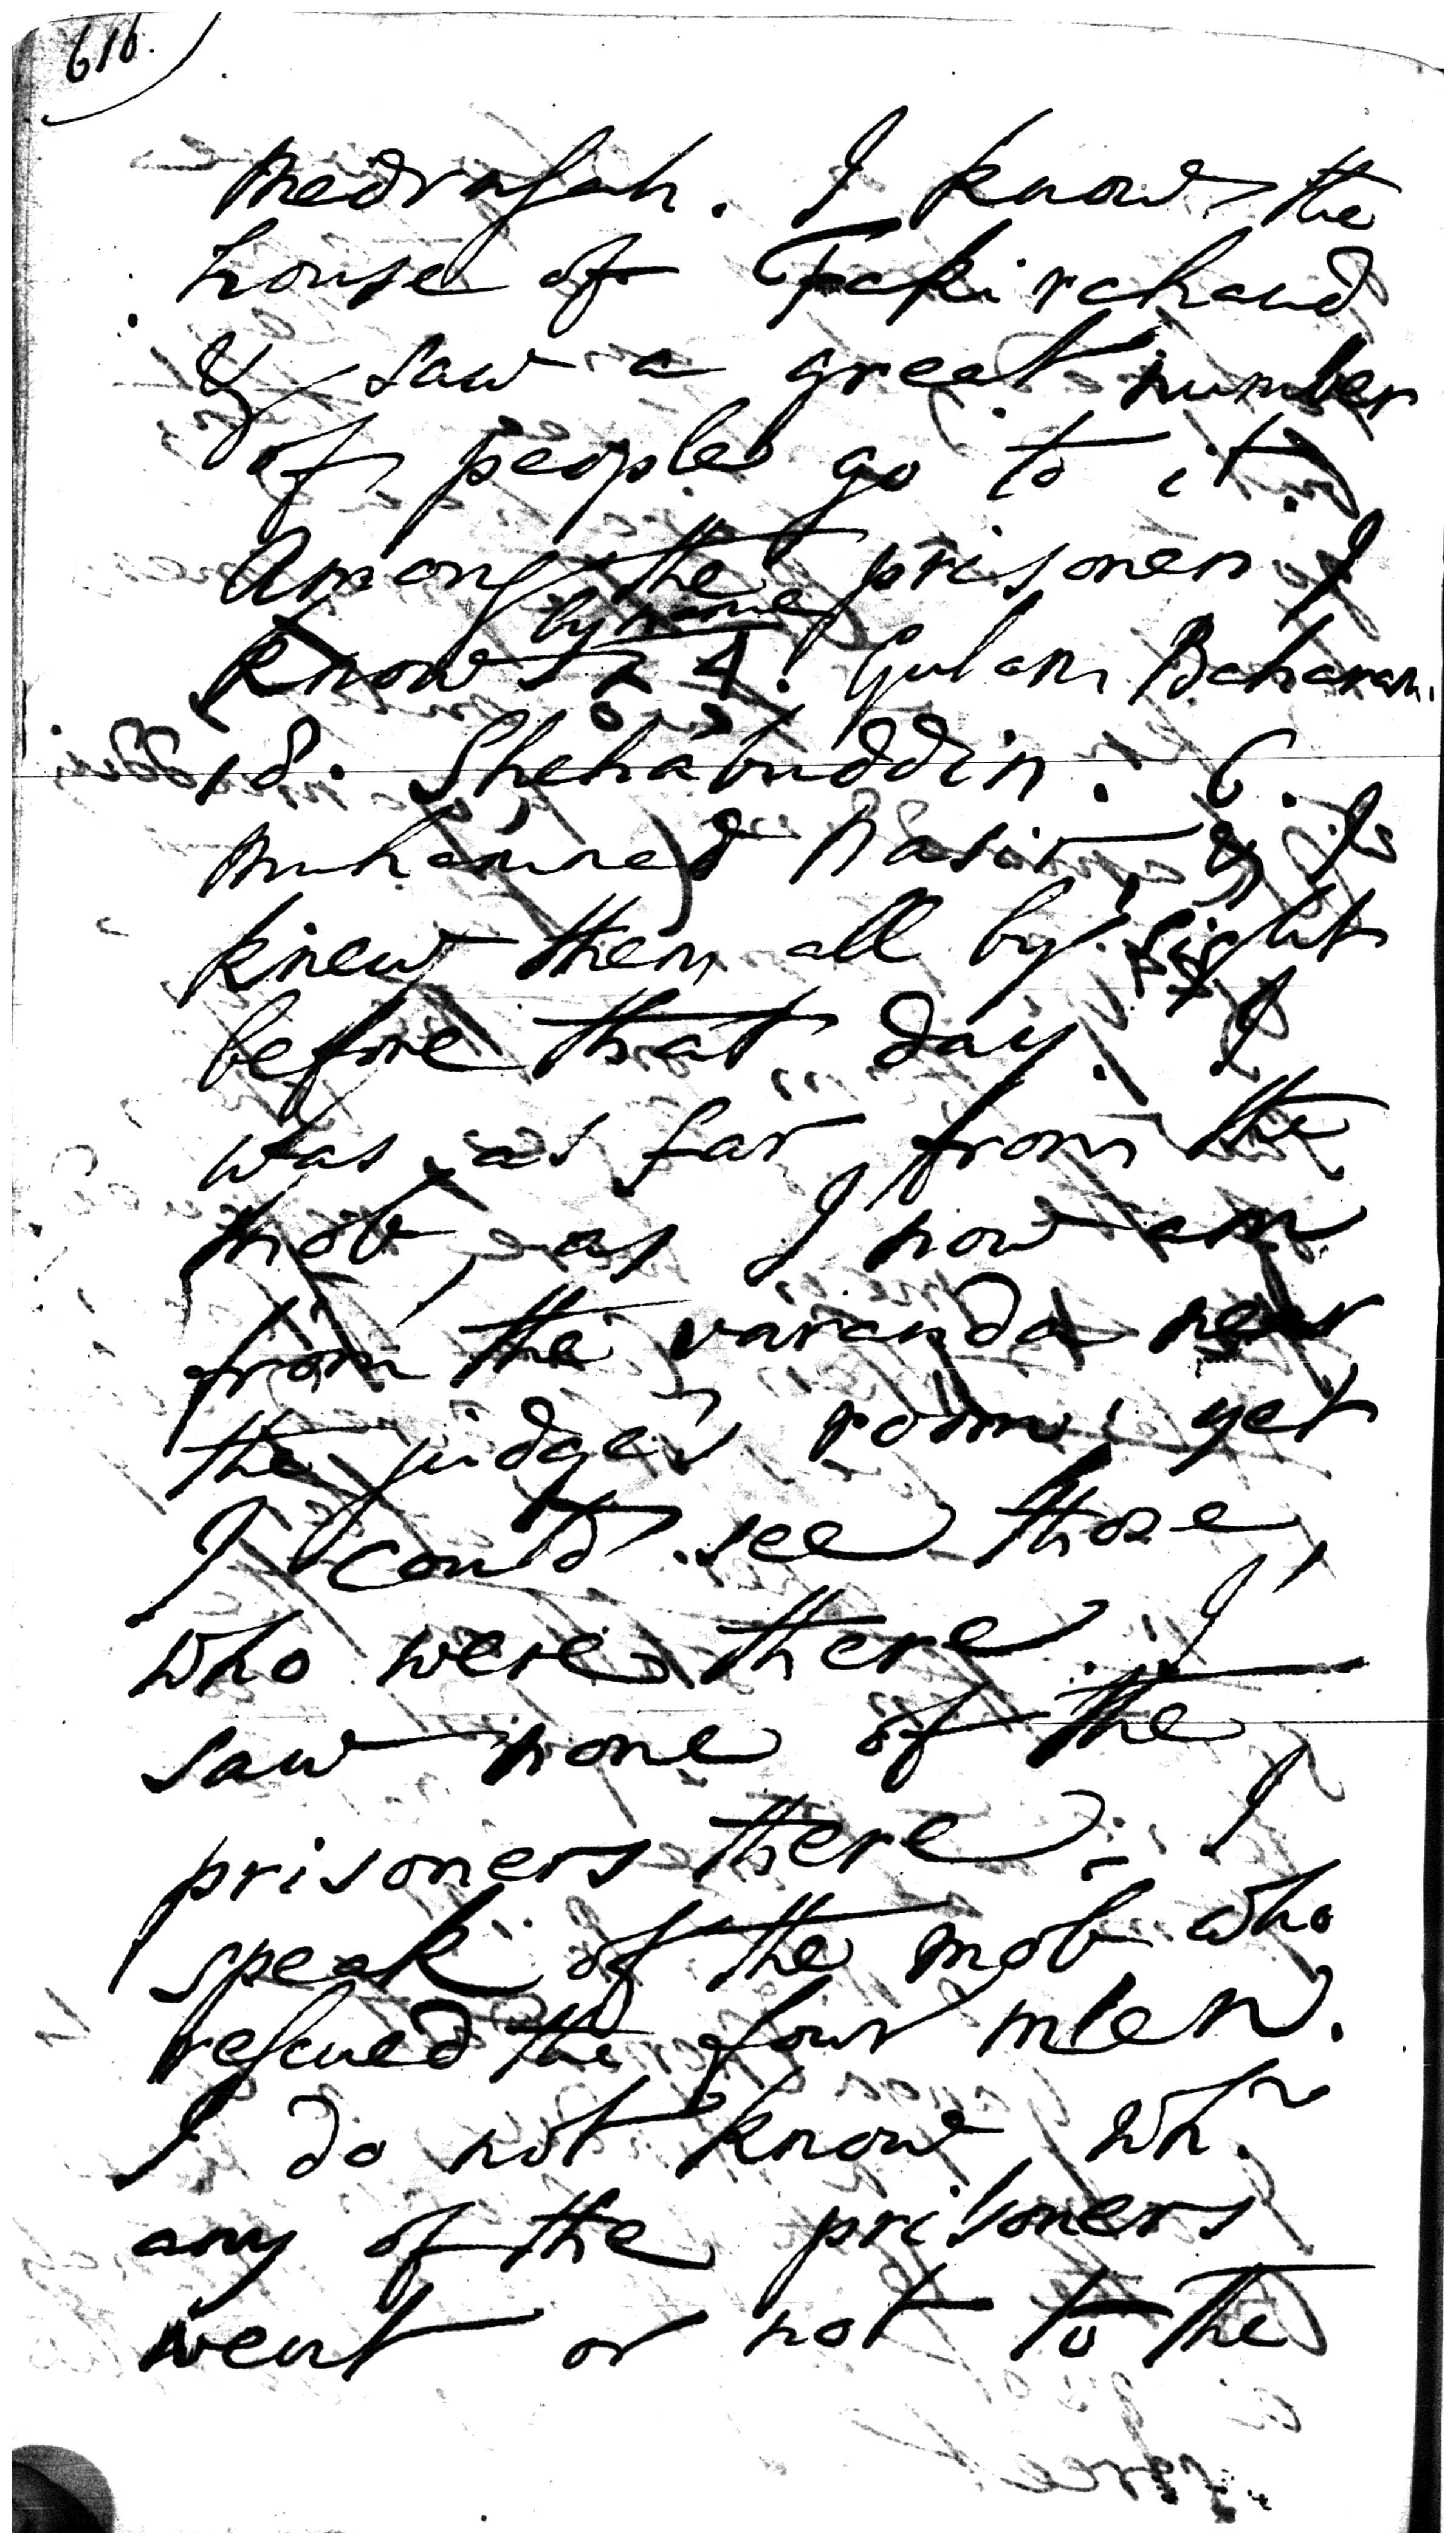 616.
Medrasah. I know the
house of Fakirchand
& saw a great number
of people go to it.
Among the prisoners I
by name
know 4. Gulam Baharam.
18. Shehabuddin. 6.
Muhammed Nasir & I
knew them all by sight
before that day. I
was as far from the
mob, as I now am
from the varanda near
the judge's room, yet
I could see those,
who were there. I
saw none of the
prisoners there. I
speak of the mob who
rescued the four men.
I do not know wh.r
any of the prisoners
went or not to the